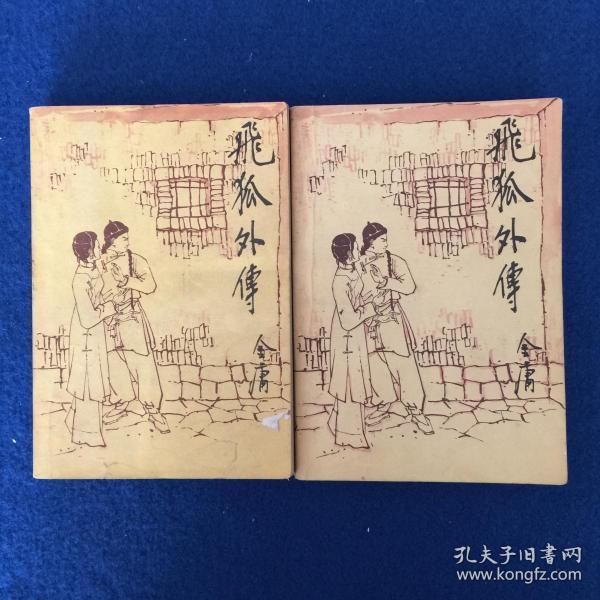 飛狐外傳
金庸
飛狐外傳
金庸
孔夫子旧書网
www.kongfz.com